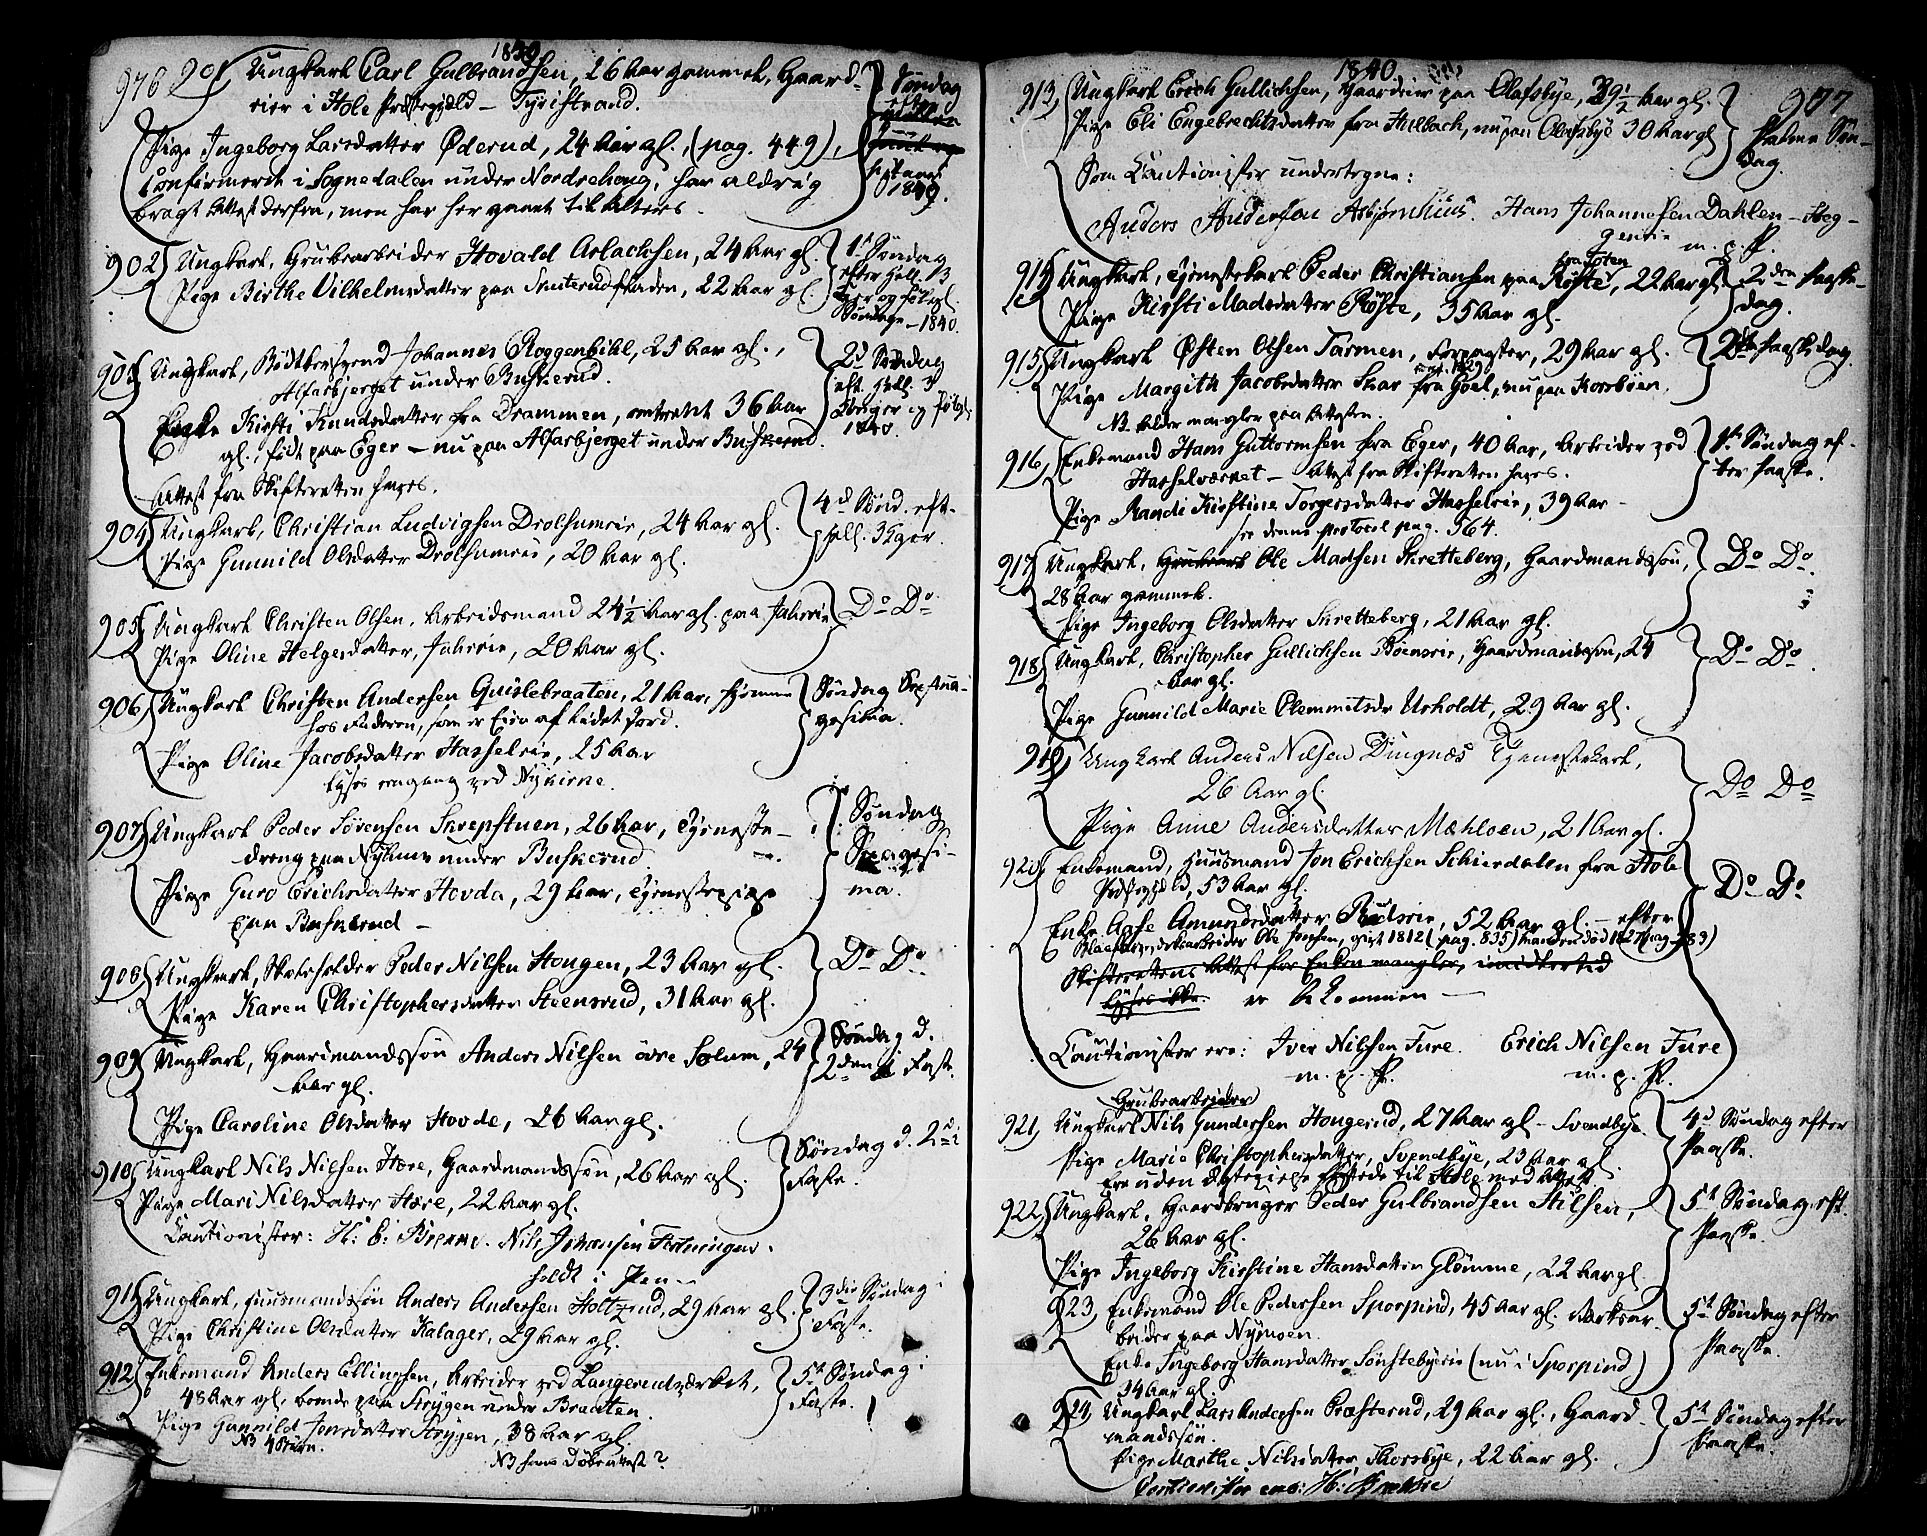 976
1839
901 Ungkarl Carl Gulbrandsen, 26 Aar gammel, Gaard-
eier i Hole Præstegjeld – Tyristrand.
Pige Ingeborg Larsdatter Øderud, 24 Aar gl., (pag. 449),
Confirmeret i Sognedalen under Nordrehoug, har aldrig
bragt Attest derfra, men har her gaaet til Alters.
Søndag
1840.
902) Ungkarl, Grubearbeider Hovald Aslachsen, 24 Aar gl.
Pige Birthe Vilhelmsdatter paa Snuterudfladen, 22 Aar gl.
1st Søndag
efter Hell. 3
Kger og følgl.
Søndage – 1840.
903 Ungkarl, Bødkersvend Johannes Roggenbihl, 25 Aar gl.,
Alfarbjerget under Buskerud.
Enke Kirsti Knudsdatter fra Drammen, omtrent 36 Aar
gl., født paa Eger – nu paa Alfarbjerget under Buskerud.
Attest fra Skifteretten haves.
2d Søndag
eft. Hell. 3
Konger og følgl.
1840.
904) Ungkarl, Christian Ludvigsen Drolsumeie, 24 Aar gl.
Pige Gunnild Olsdatter Drolsumeie, 20 Aar gl.
4d Sønd. eft.
Hell. 3 Kger.
905 Ungkarl Christen Olsen, Arbeidsmand 24½ Aar gl. paa Jahreie
Pige Oline Helgesdatter, Jahreie, 20 Aar gl.
Do Do
906) Ungkarl Christen Andersen Quislebraaten, 21 Aar, hjemme
hos Faderen, som er Eier af Ledet Jord.
Pige Oline Jacobsdatter Hasseleie, 25 Aar
lyses engang ved Nykirne.
Søndag Septua-
gesima.
907) Ungkarl Peder Sørensen Skrepstuen, 26 Aar, Tjeneste-
dreng paa Nyhuus under Buskerud.
Pige Guro Erichsdatter Hovda, 29 Aar, Tjenestepige
paa Buskerud –
Søndag
Sexagesi-
ma.
908) Ungkarl, Skoleholder Peder Nilsen Hougen, 23 Aar gl.
Pige Karen Christophersdatter Steensrud, 31 Aar gl.
Do Do
909) Ungkarl, Gaardmandssøn Anders Nilsen øvre Solum, 24
Aar gl.
Pige Caroline Olsdatter Hovde, 26 Aar gl.
Søndag d.
2den i Faste.
910) Ungkarl Nils Nilsen Hære, Gaardmandssøn, 26 Aar gl.
Pige Mari Nilsdatter Hære, 22 Aar gl.
Cautionister: H: C: Brenne. Nils Johansen
holdt i Pen –
Søndag d. 2d i
Faste.
911) Ungkarl, Huusmandssøn Anders Andersen Holtzrud, 29 Aar gl.
Pige Christine Olsdatter Kalager, 29 Aar gl.
3die Søndag i
Faste.
912) Enkemand Anders Ellingsen, Arbeider ved Langerudværket,
48 Aar gl., boende paa Strygen under Braaten.
Pige Gunnild Jonsdatter Strygen, 38 Aar gl.
NB 4 Børn.
NB hans Døbeattest?
5te Søndag i
Faste.
1840
977
913) Ungkarl Erich Gullichsen, Gaardeier paa Olafsbye, 29½ Aar gl.
Pige Eli Engebrechtsdatter fra Hulbach, nu paa Olafsbye 30 Aar gl
Som Cautionister undertegne:
Anders Andersen Asbjørnhuus. Hans Johannesen Dahlen – Heg-
m. p. P.
Palme Søn-
dag.
914) Ungkarl, Tjenestekarl Peder Christiansen paa Røste, 22 Aar gl.
Pige Kirsti Madsdatter Røste, 35 Aar gl.
2den Paaske-
dag.
915) Ungkarl Østen Olsen Tarmen, Forpagter, 29 Aar gl.
Pige Margith Jacobsdatter Skar fra Goel, nu paa Korsbøen.
NB Alder mangler paa Attesten.
2den Paaskedag.
916) Enkemand Hans Guttormsen fra Eger, 40 Aar, Arbeider ved
Hasselværket – Attest fra Skifteretten haves.
Pige Randi Kirstine Torgersdatter Hasseleie, 39 Aar –
see denne Protocol pag. 564.
1te Søndag ef-
ter Paaske.
917) Ungkarl, Ole Madsen Skretteberg, Gaardmandssøn,
28 Aar gammel.
Pige Ingeborg Olsdatter Skretteberg, 21 Aar gl.
Do Do.
918) Ungkarl, Christopher Gullichsen Bøenseie, Gaardmandssøn, 24
Aar gl.
Pige Gunnild Marie Clemmitsdr Urholdt, 29 Aar gl.
Do Do.
919) Ungkarl Anders Nilsen Dingnæs Tjenestekarl,
26 Aar gl.
Pige Anne Andersdatter Mæhloen, 21 Aar gl.
Do Do
920) Enkemand, Huusmand Jon Erichsen Schierdalen fra Hole
Præstegjeld, 53 Aar gl.
Enke Aase Amundsdatter Rudseie, 52 Aar gl. – efter
Blaafarveværksarbeider Ole Jonsen, gift 1812 (pag. 835) Manden død 1827 (pag. 283)
Skifterettens Attest for Enken mangler, imidlertid
lyses ikke. er bekommen –
Cautionister ere: Iver Nilsen Ture. Erich Nilsen Ture
m. p. P. m. p. P.
Do Do
Grubearbeider
921) Ungkarl Nils Gundersen Hougerud, 27 Aar gl – Svendbye.
Pige Marie Christophersdatter, Svendbye, 23 Aar gl.
ere uden Ægtevielse til Hole med Attest.
4d Søndag efter
Paaske.
922) Ungkarl, Gaardbruger Peder Gulbrandsen Stilsen,
26 Aar gl.
Pige Ingeborg Kirstine Hansdatter Glømme, 22 Aar gl.
5t Søndag eft.
Paaske.
923) Enkemand Ole Pedersen Sporpind, 45 Aar gl. Værksar-
beider paa Nymoen.
Enke Ingeborg Hansdatter Sønstebyeie (nu i Sporpind)
34 Aar gl.
5t Søndag efter
Paaske.
924) Ungkarl Lars Andersen Præsterud, 29 Aar gl., Gaard-
mandssøn.
Pige Marthe Nilsdatter Thorsbye, 22 Aar gl.
Cautionister ere: H:
5t Søndag efter
Paaske.